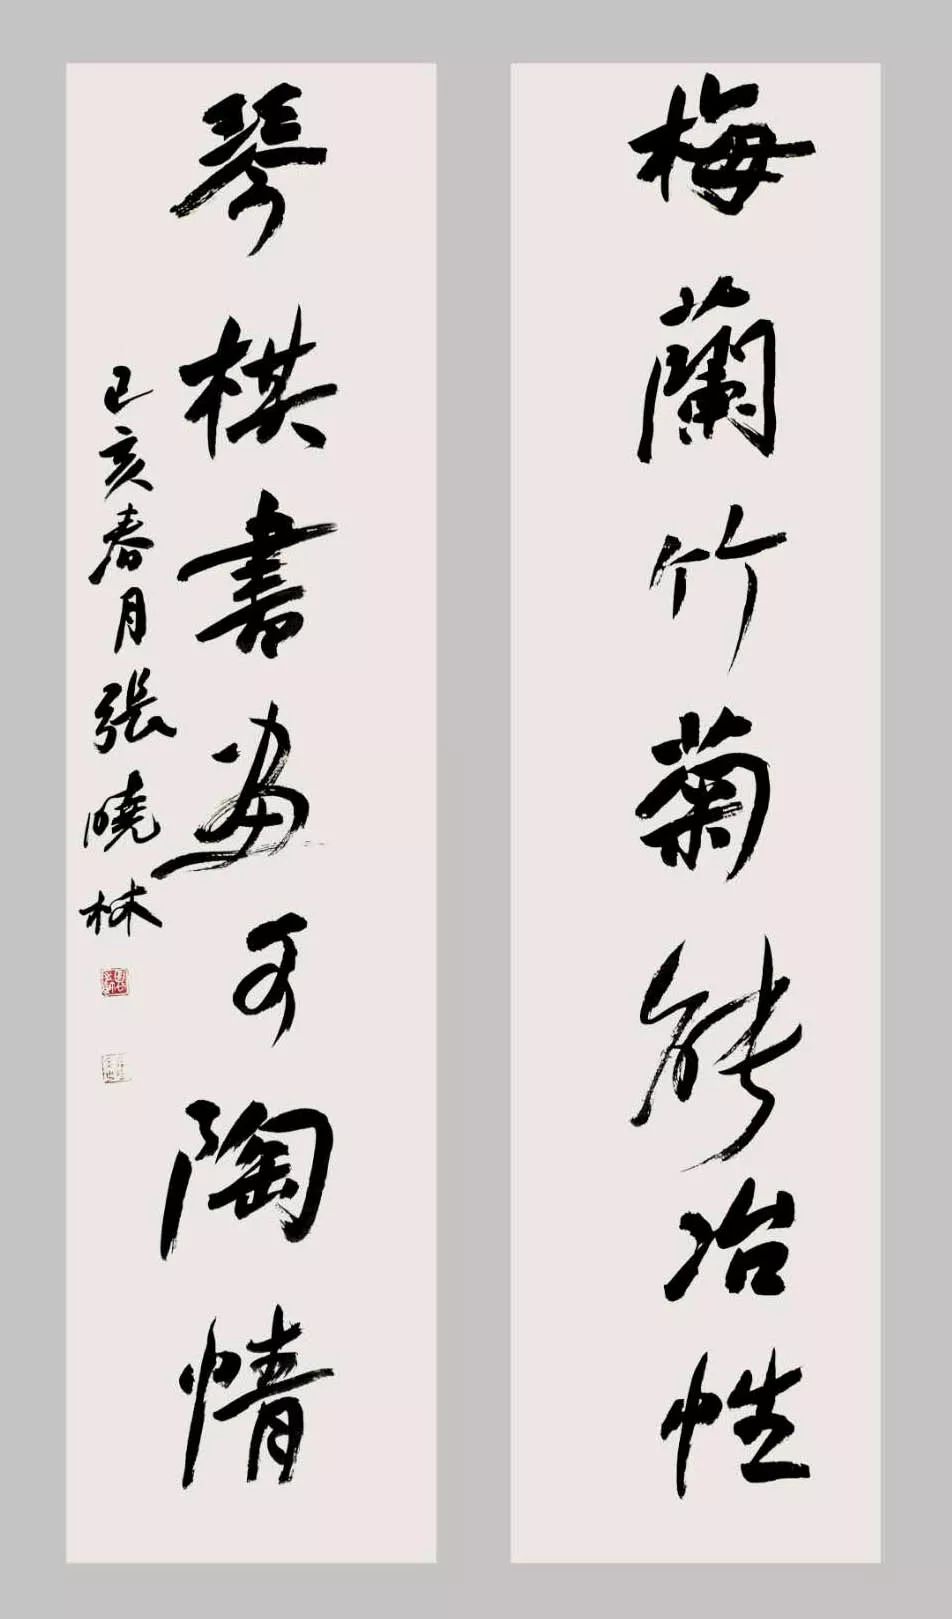 梅蘭竹菊能冶性
琴棋書畫可陶情
己亥春月張曉林